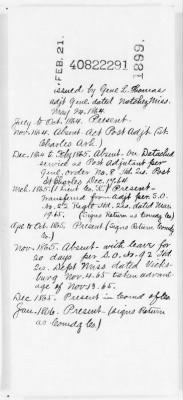 FEB. 21.
40822291
1899.
issued by Genl L. Thomas
adjt Genl dated Natchez Miss.
May 24. 1864.
July to Octr. 1864. Present.
Nov. 1864. Absent Act Post Adjt. (St.
Charles Ark.)
Dec. 1864 to Feb/1865. Absent on Detached
service as Post Adjutant per
Genl. order No. 8 Hd Qrs. Post
St Charles Dec. 17. 64
Mch. 1865. (1 Lieut Co. K.) Present
Transferred from Adjt per S.O.
No. 22 Regtl Hd. Qrs. dated Mar.
19. 65. (Signs Return as Comdg Co.)
Apr. to Oct. 1865. Present (Signs Return Comdg
Co.)
Nov. 1865. Absent with leave for
20 days per S.O. No. 42 Hd
Qrs. Dept Miss dated Vicks-
burg Nov. 4. 65 taken advant-
age of Nov. 13. 65.
Dec. 1865. Present in Comd of Co.
Jan. 1866. Present (Signs Return
as Comdg Co)